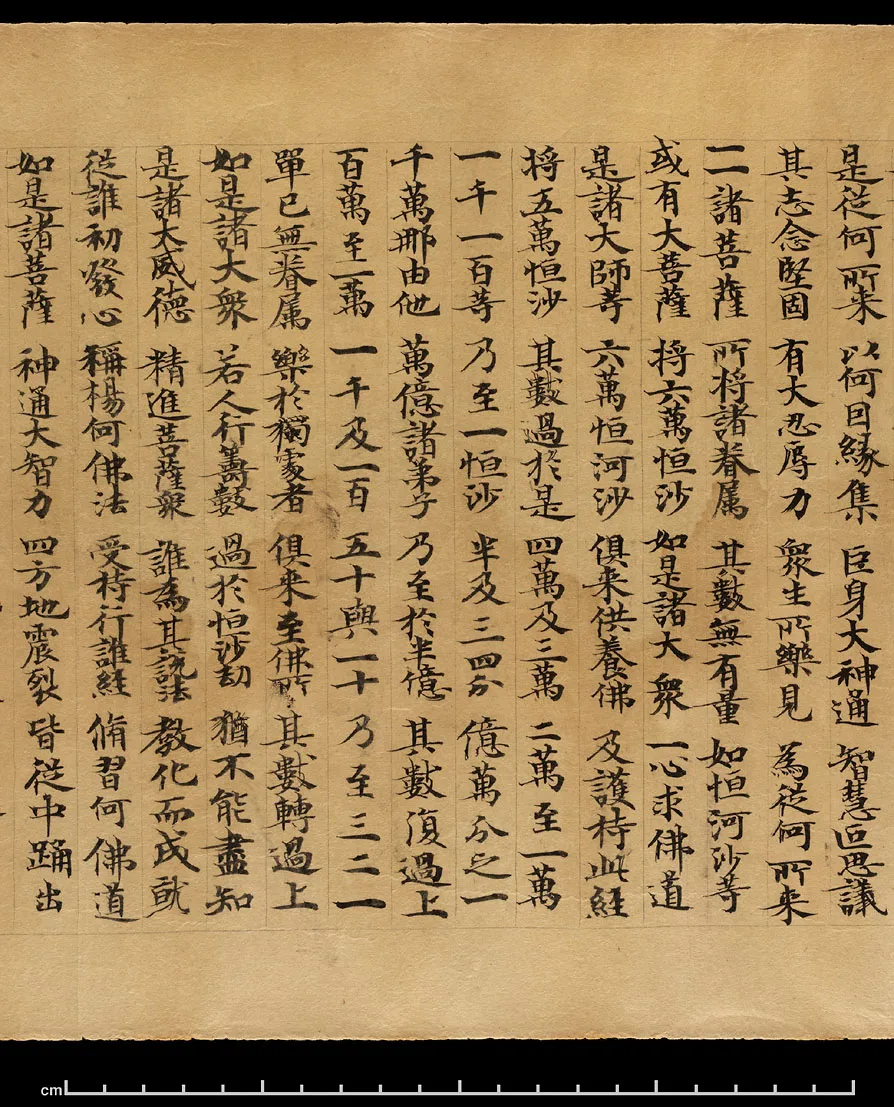 是從何所来 以何因緣集 巨身大神通 智慧叵思議
其志念堅固 有大忍辱力 衆生所樂見 為從何所来
一一諸菩薩 所将諸眷属 其數無有量 如恒河沙等
或有大菩薩 将六萬恒沙 如是諸大衆 一心求佛道
是諸大師等 六萬恒河沙 俱来供養佛 及護持此經
将五萬恒沙 其數過於是 四萬及三萬 二萬至一萬
一千一百等 乃至一恒沙 半及三四分 億萬分之一
千萬那由他 萬億諸弟子 乃至於半億 其數復過上
百萬至一萬 一千及一百 五十與一十 乃至三二一
單己無眷属 樂於獨處者 俱来至佛所 其數轉過上
如是諸大衆 若人行籌數 過於恒沙劫 猶不能盡知
是諸大威德 精進菩薩衆 誰為其說法 教化而成就
從誰初發心 稱楊何佛法 受持行誰經 脩習何佛道
如是諸菩薩 神通大智力 四方地震裂 皆從中踊出
cm